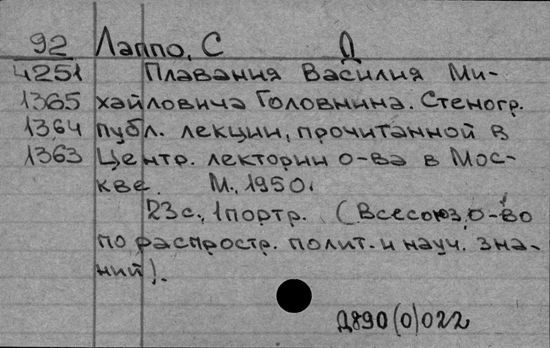 92 Лаппо, С Д
4251 Плавания Василия Ми-
1365 хайловича Головнина. Стеногр.
1364 публ. лекции, прочитанной в
1363 Центр. лектории о-ва в Мос-
кве. М., 1950.
23с., 1портр. (Всесоюз. о-во
по распростр. полит. и науч. зна-
ний).
Д890(0)022